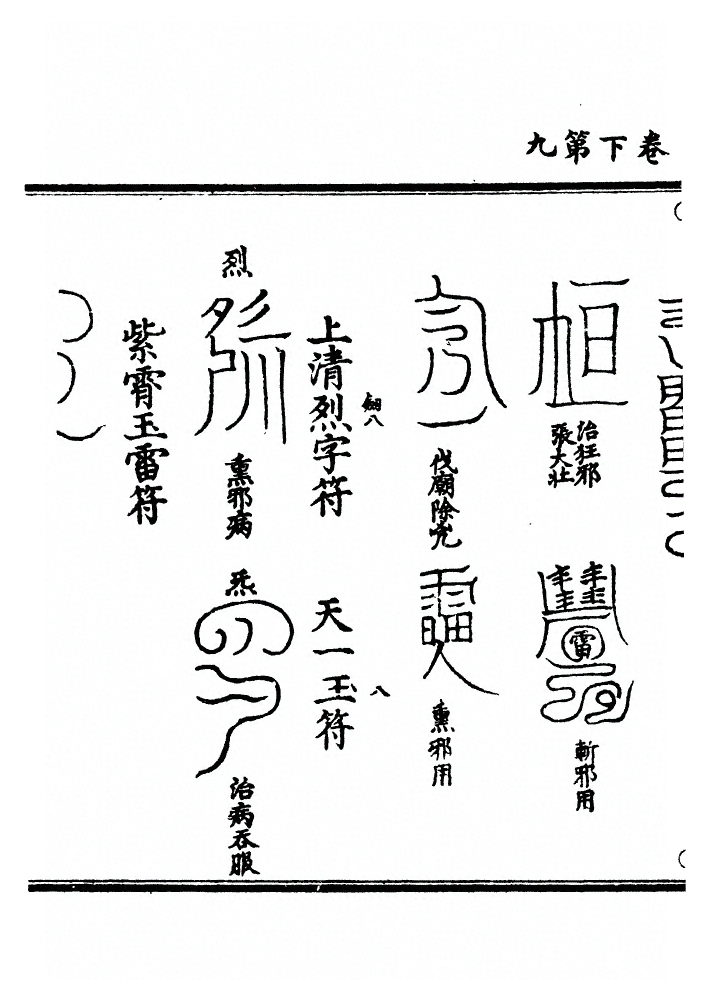 卷下第九
治狂邪
張大壯
斬邪用
伐廟除兇
熏邪用
上清烈字符
天一玉符
八
烈
熏邪病
炁
治病吞服
紫霄玉雷符